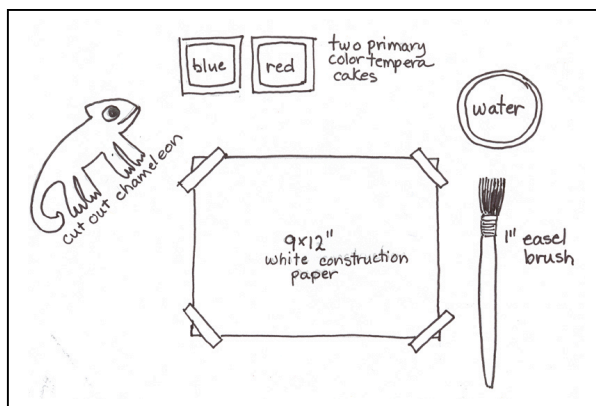 blue
red
two primary
color tempera
cakes
water
cut out chameleon
9x12"
white construction
paper
1" easel
brush